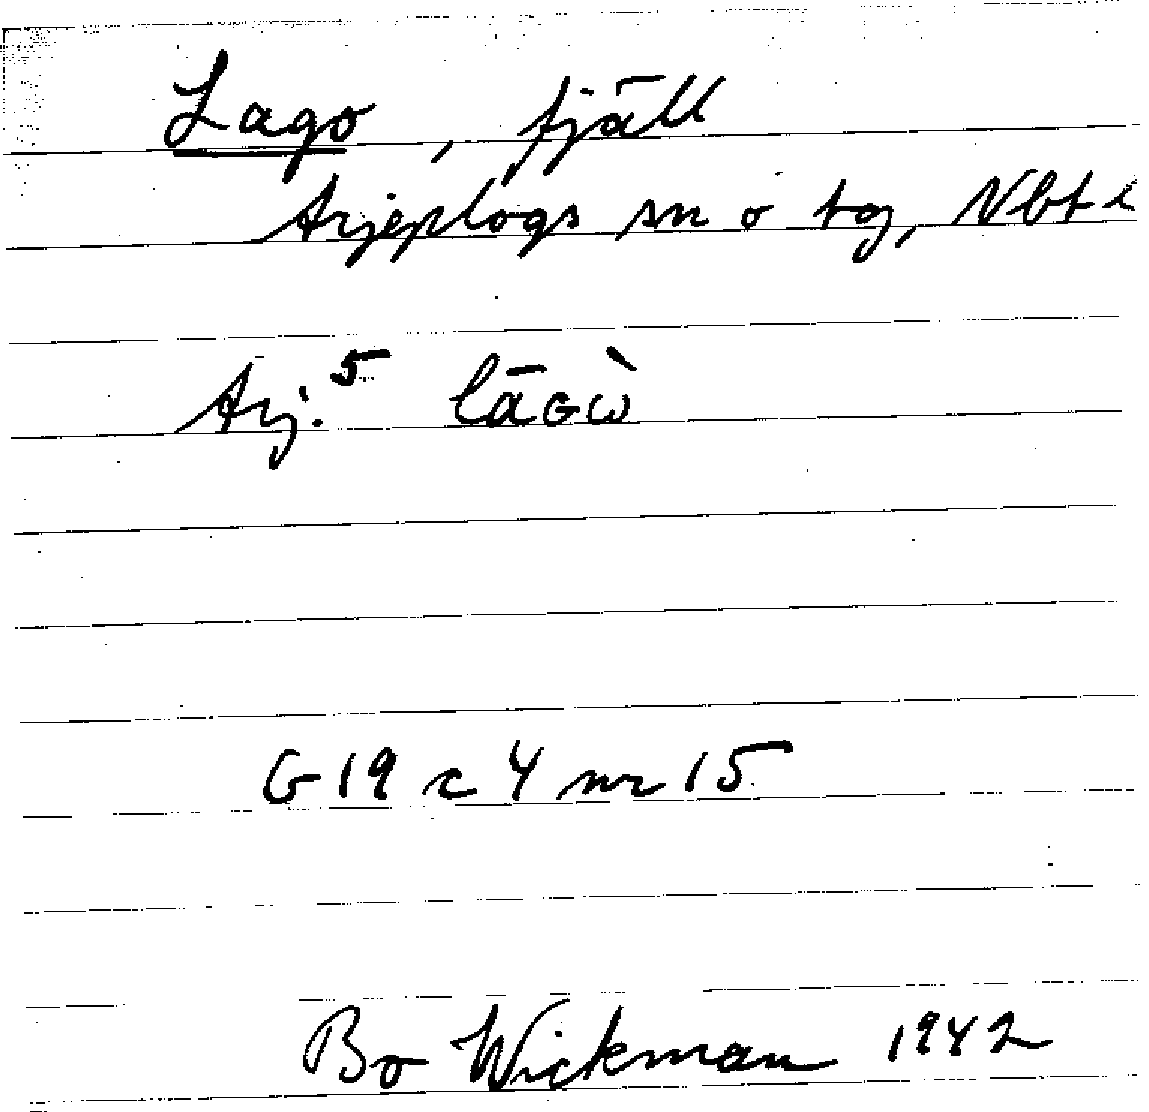 Lago, fjäll
Arjeplogs sn o tg, Nbt l
Arj.⁵ lāɢὼ
G 19 c 4 nr 15
Bo Wickman 1942